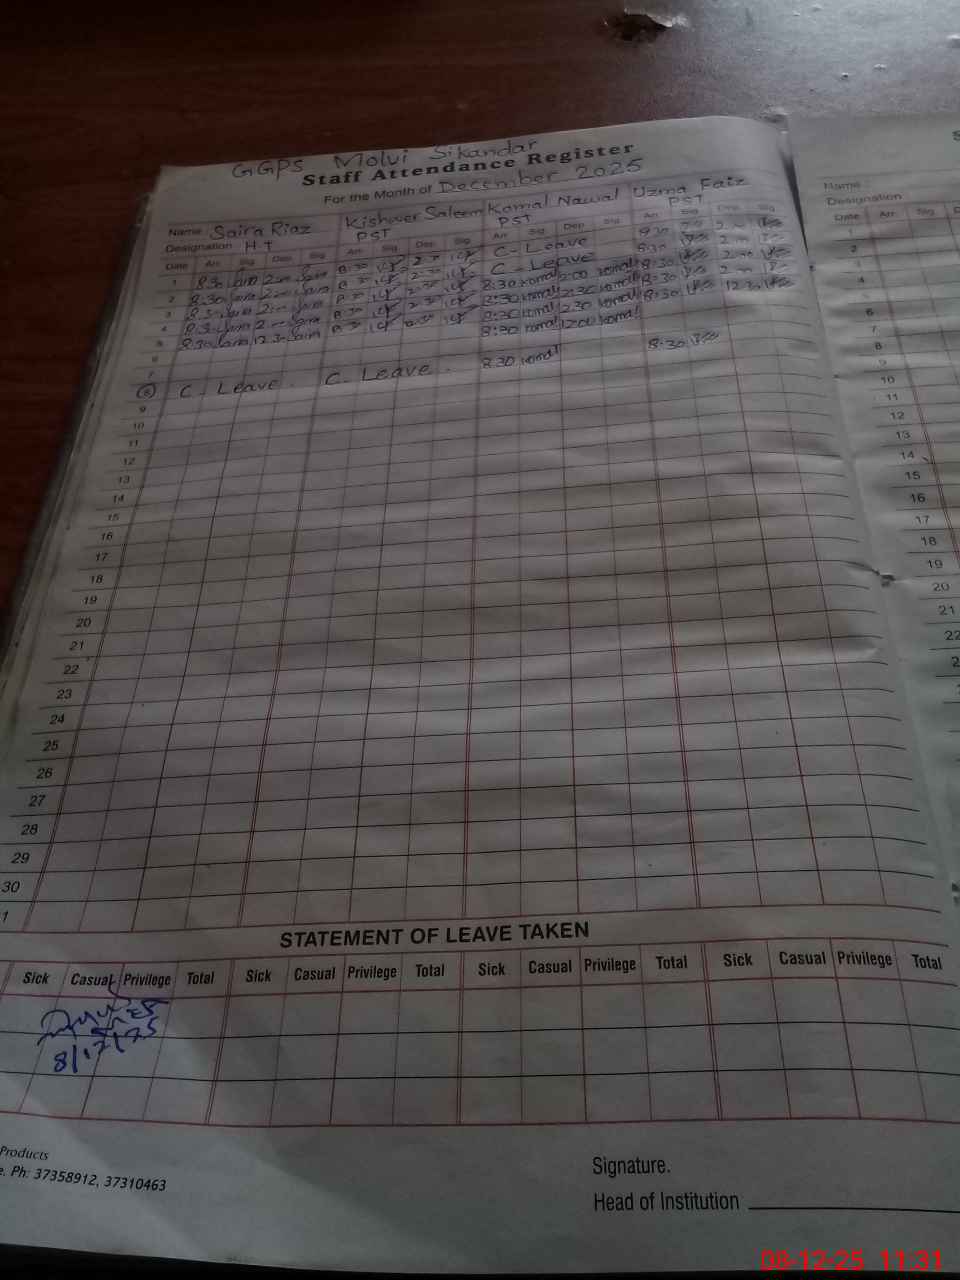 GGPS Molvi Sikandar
Staff Attendance Register
For the Month of December 2025
Name Saira Riaz Kishwer Saleem Komal Nawal Uzma Faiz
Designation H T PST PST PST
Date Arr. Sig Dep. Sig Arr. Sig Dep. Sig Arr. Sig Dep. Sig Arr. Sig Dep. Sig
1 8:30 2:00 8:30 2:30 C-Leave 8:30 2:00
2 8:30 2:00 8:30 2:30 C-Leave 8:30 2:00
3 8:30 2:00 8:30 2:30 8:30 Komal 2:00 Komal 8:30 2:00
4 8:30 2:00 8:30 2:30 8:30 Komal 2:30 Komal 8:30 2:00
5 8:30 12:30 8:30 8:30 Komal 2:30 Komal 8:30 12:30
6 8:30 Komal 12:00 Komal
7
8 C-Leave. C-Leave. 8:30 Komal 8:30
9
10
11
12
13
14
15
16
17
18
19
20
21
22
23
24
25
26
27
28
29
30
1
STATEMENT OF LEAVE TAKEN
Sick Casual Privilege Total Sick Casual Privilege Total Sick Casual Privilege Total Sick Casual Privilege Total
8/12/25
Products
e. Ph: 37358912, 37310463
Signature.
Head of Institution
S
Name
Designation
Date Arr. Sig D
1
2
3
4
5
6
7
8
9
10
11
12
13
14
15
16
17
18
19
20
21
22
2
08-12-25 11:31